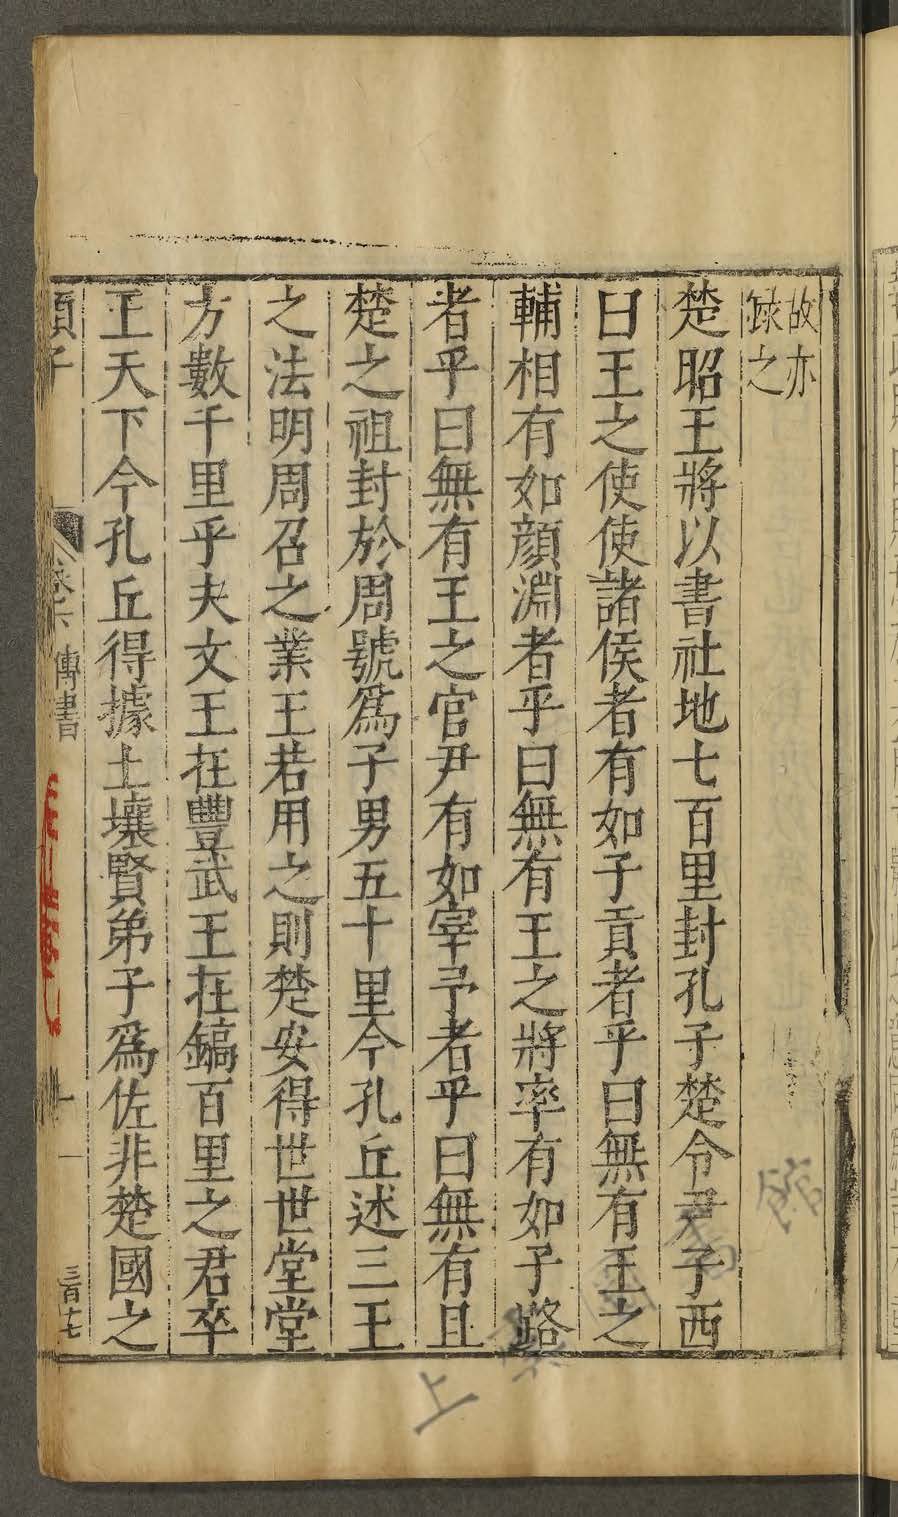 故亦
錄之
楚昭王將以書社地七百里封孔子楚令尹子西
曰王之使使諸侯者有如子貢者乎曰無有王之
輔相有如顏淵者乎曰無有王之將率有如子路
者乎曰無有王之官尹有如宰予者乎曰無有且
楚之祖封於周號爲子男五十里今孔丘述三王
之法明周召之業王若用之則楚安得世世堂堂
方數千里乎夫文王在豐武王在鎬百里之君卒
王天下今孔丘得據土壤賢弟子爲佐非楚國之
卷六
傳書
三百十七